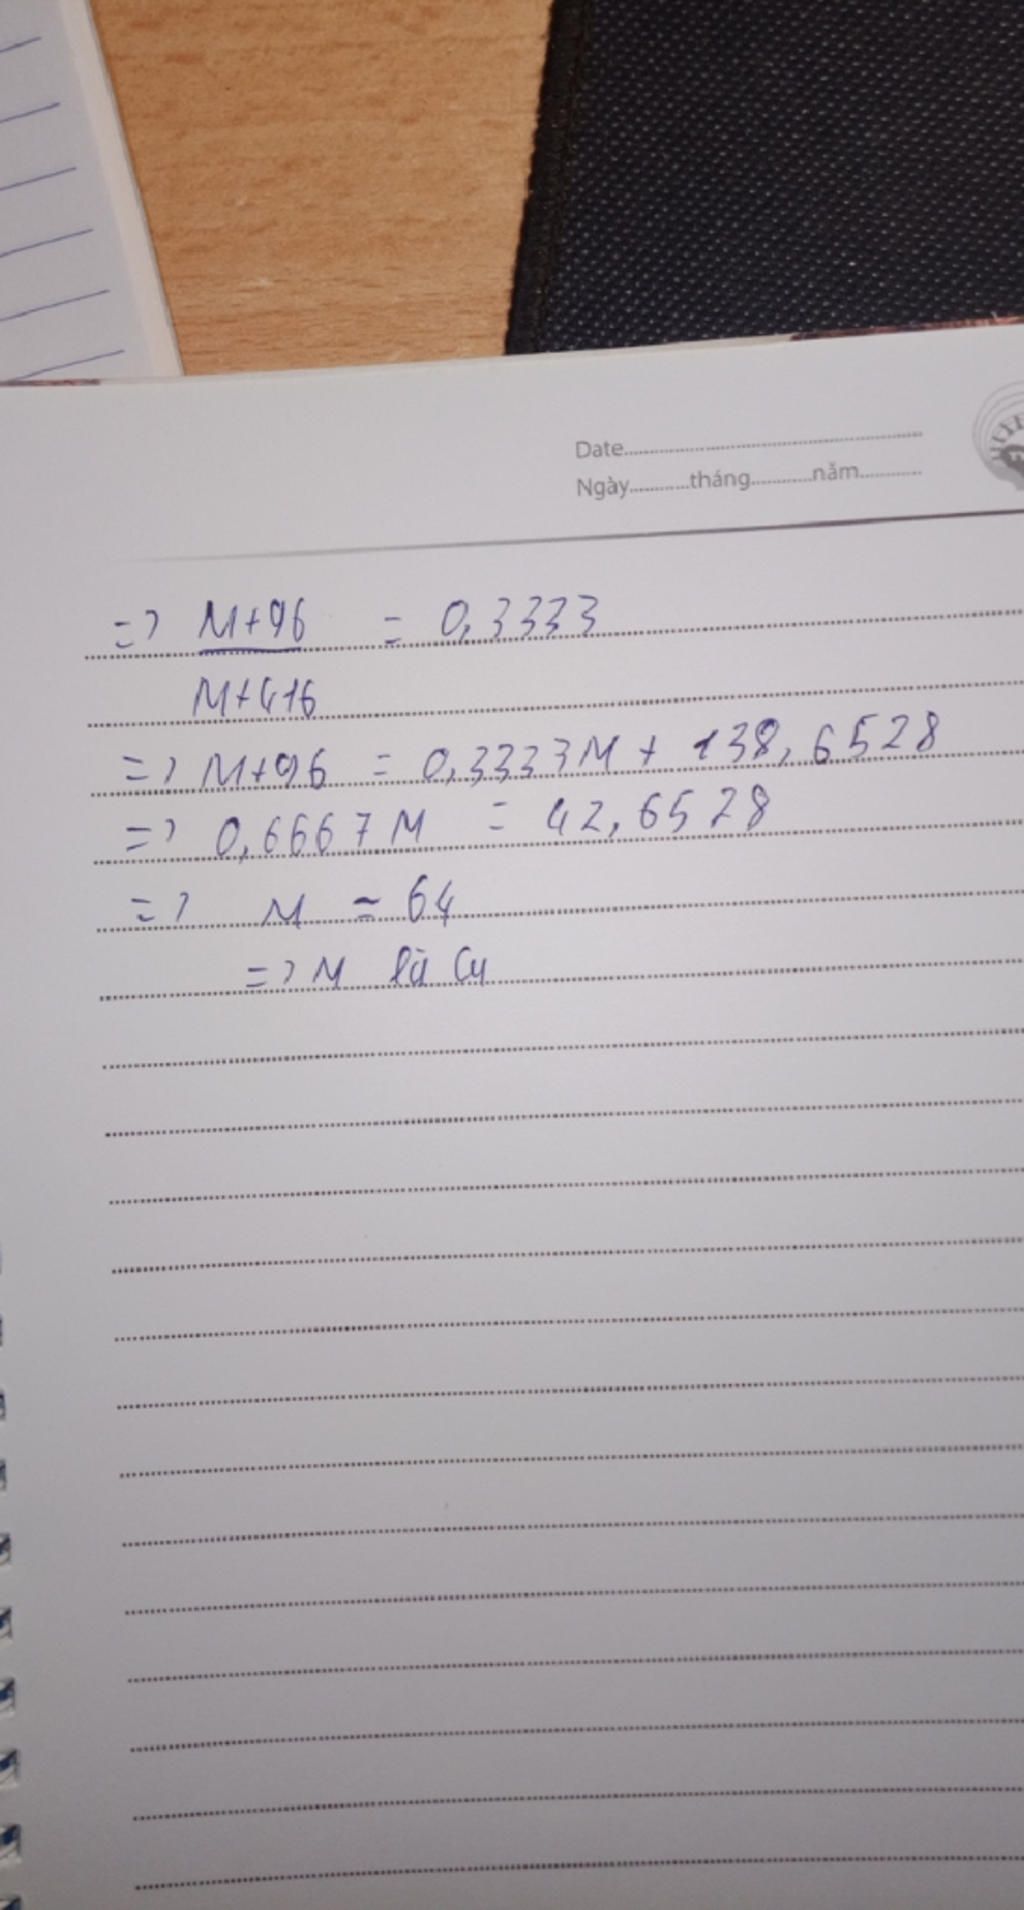 Date
Ngày tháng năm
=> M+96 = 0,3333
M+416
=> M+96 = 0,3333M + 138,6528
=> 0,6667M = 42,6528
=> M ~ 64
=> M là Cu